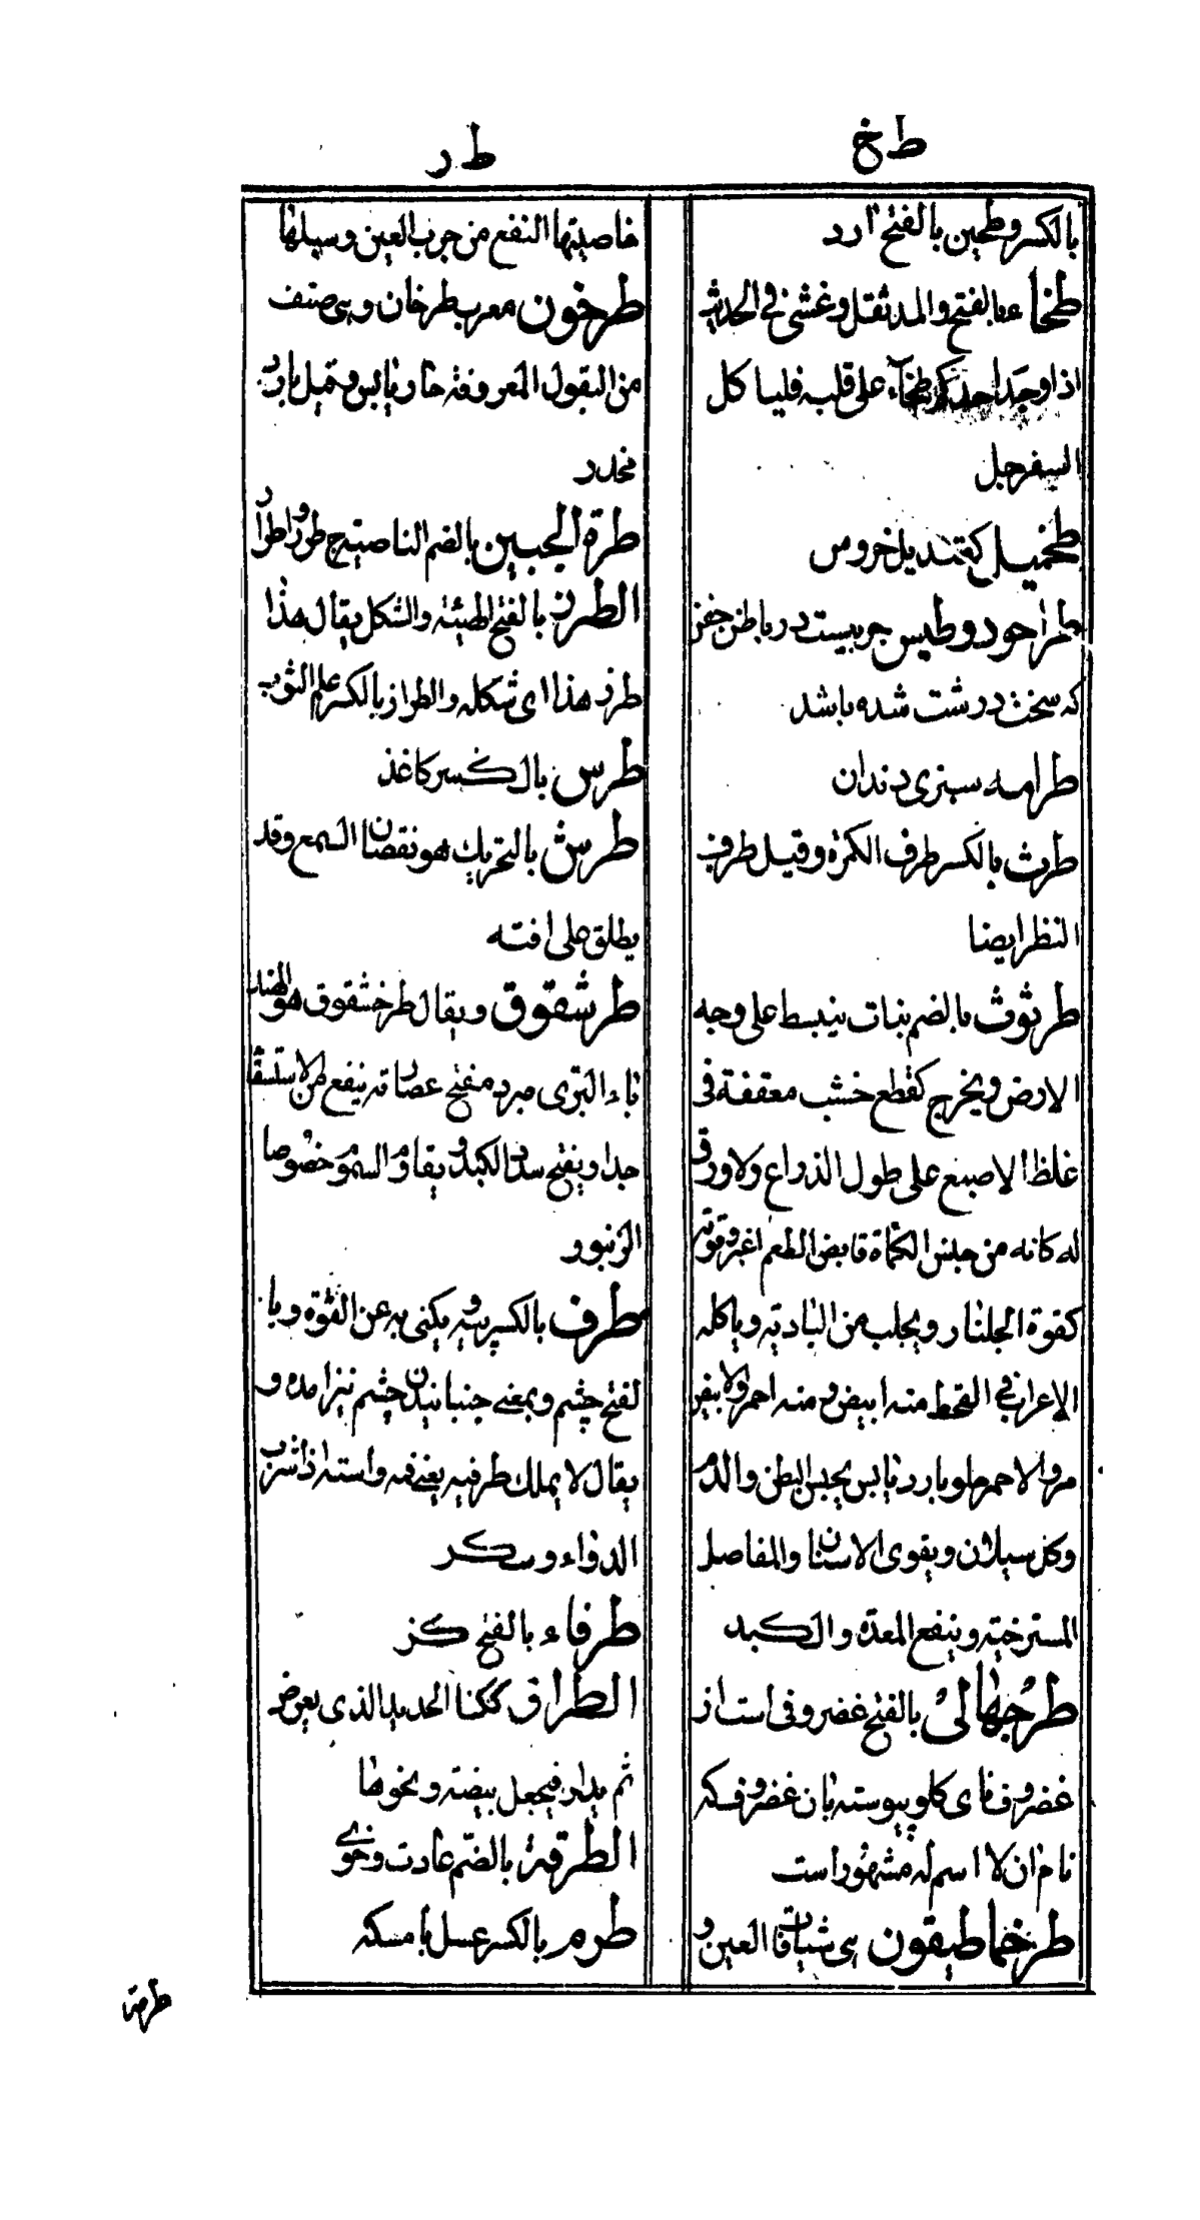 ط خ
بالكسر وطحين بالفتح آرد
طخاء بالفتح والمد ثقل وغشى فى الحديث
اذا وجد احدكم طخآء على قلبه فلياكل
السفرجل
طخميل كقنديل خروس
در باطن جفن
كه سخت درشت شده باشد
طرامه سبزى دندان
طرث بالكسر طرف الكمرة وقيل طرف
النظر ايضا
طرثوث بالضم نبات ينبسط على وجه
الارض ويخرج كقطع خشب معقفة فى
غلظ الاصبع على طول الذراع ولا ورق
له كانه من جنس الكماة قابض الطعم اغبر وقوته
كقوة الجلنار ويجلب من البادية وياكله
الاعراب فى القحط منه ابيض ومنه احمر والابيض
مر والاحمر حلو بارد يابس يحبس البطن والدم
وكل سيلان ويقوى الاسنان والمفاصل
المسترخية وينفع المعدة والكبد
طرجهالى بالفتح غضروفى است از
غضروفهاى كلو پيوسته بان غضروف كه
نام ان لا اسم له مشهور است
طرخماطيقون هى شيافات العين و
ط ر
خاصيتها النفع من جرب العين وسيلها
طرخون معرب طرخان وهى صنف
من البقول المعروفة حار يابس وقيل بارد
مخدر
طرة الجبين بالضم الناصية ج طرر واطرار
الطرز بالفتح الهيئة والشكل يقال هذا
طرز هذا اى شكله والطراز بالكسر علم الثوب
طرس بالكسر كاغذ
طرش بالتحريك هو نقصان السمع وقد
يطلق على افته
طرشقوق ويقال طرخشقوق هو الهند
باء البرى مبرد مفتح عصارته ينفع من الاستسقا
جدا ويفتح سدد الكبد ويقاوم السموم خصوصا
الزنبور
طرف بالكسر پيه ويكنى به عن القوة وبا
لفتح چشم وبمعنى جنبانيدن چشم نيز امده و
يقال لا يملك طرفيه يعنى فمه واسته اذا شرب
الدواء وسكر
طرفاء بالفتح كز
الطراق ككتا الحديد الذى يعرض
ثم يدار فيجعل بيضة ونحوها
الطرقة بالضم عادت وخوى
طرم بالكسر عسل يا مسكه
طرمة